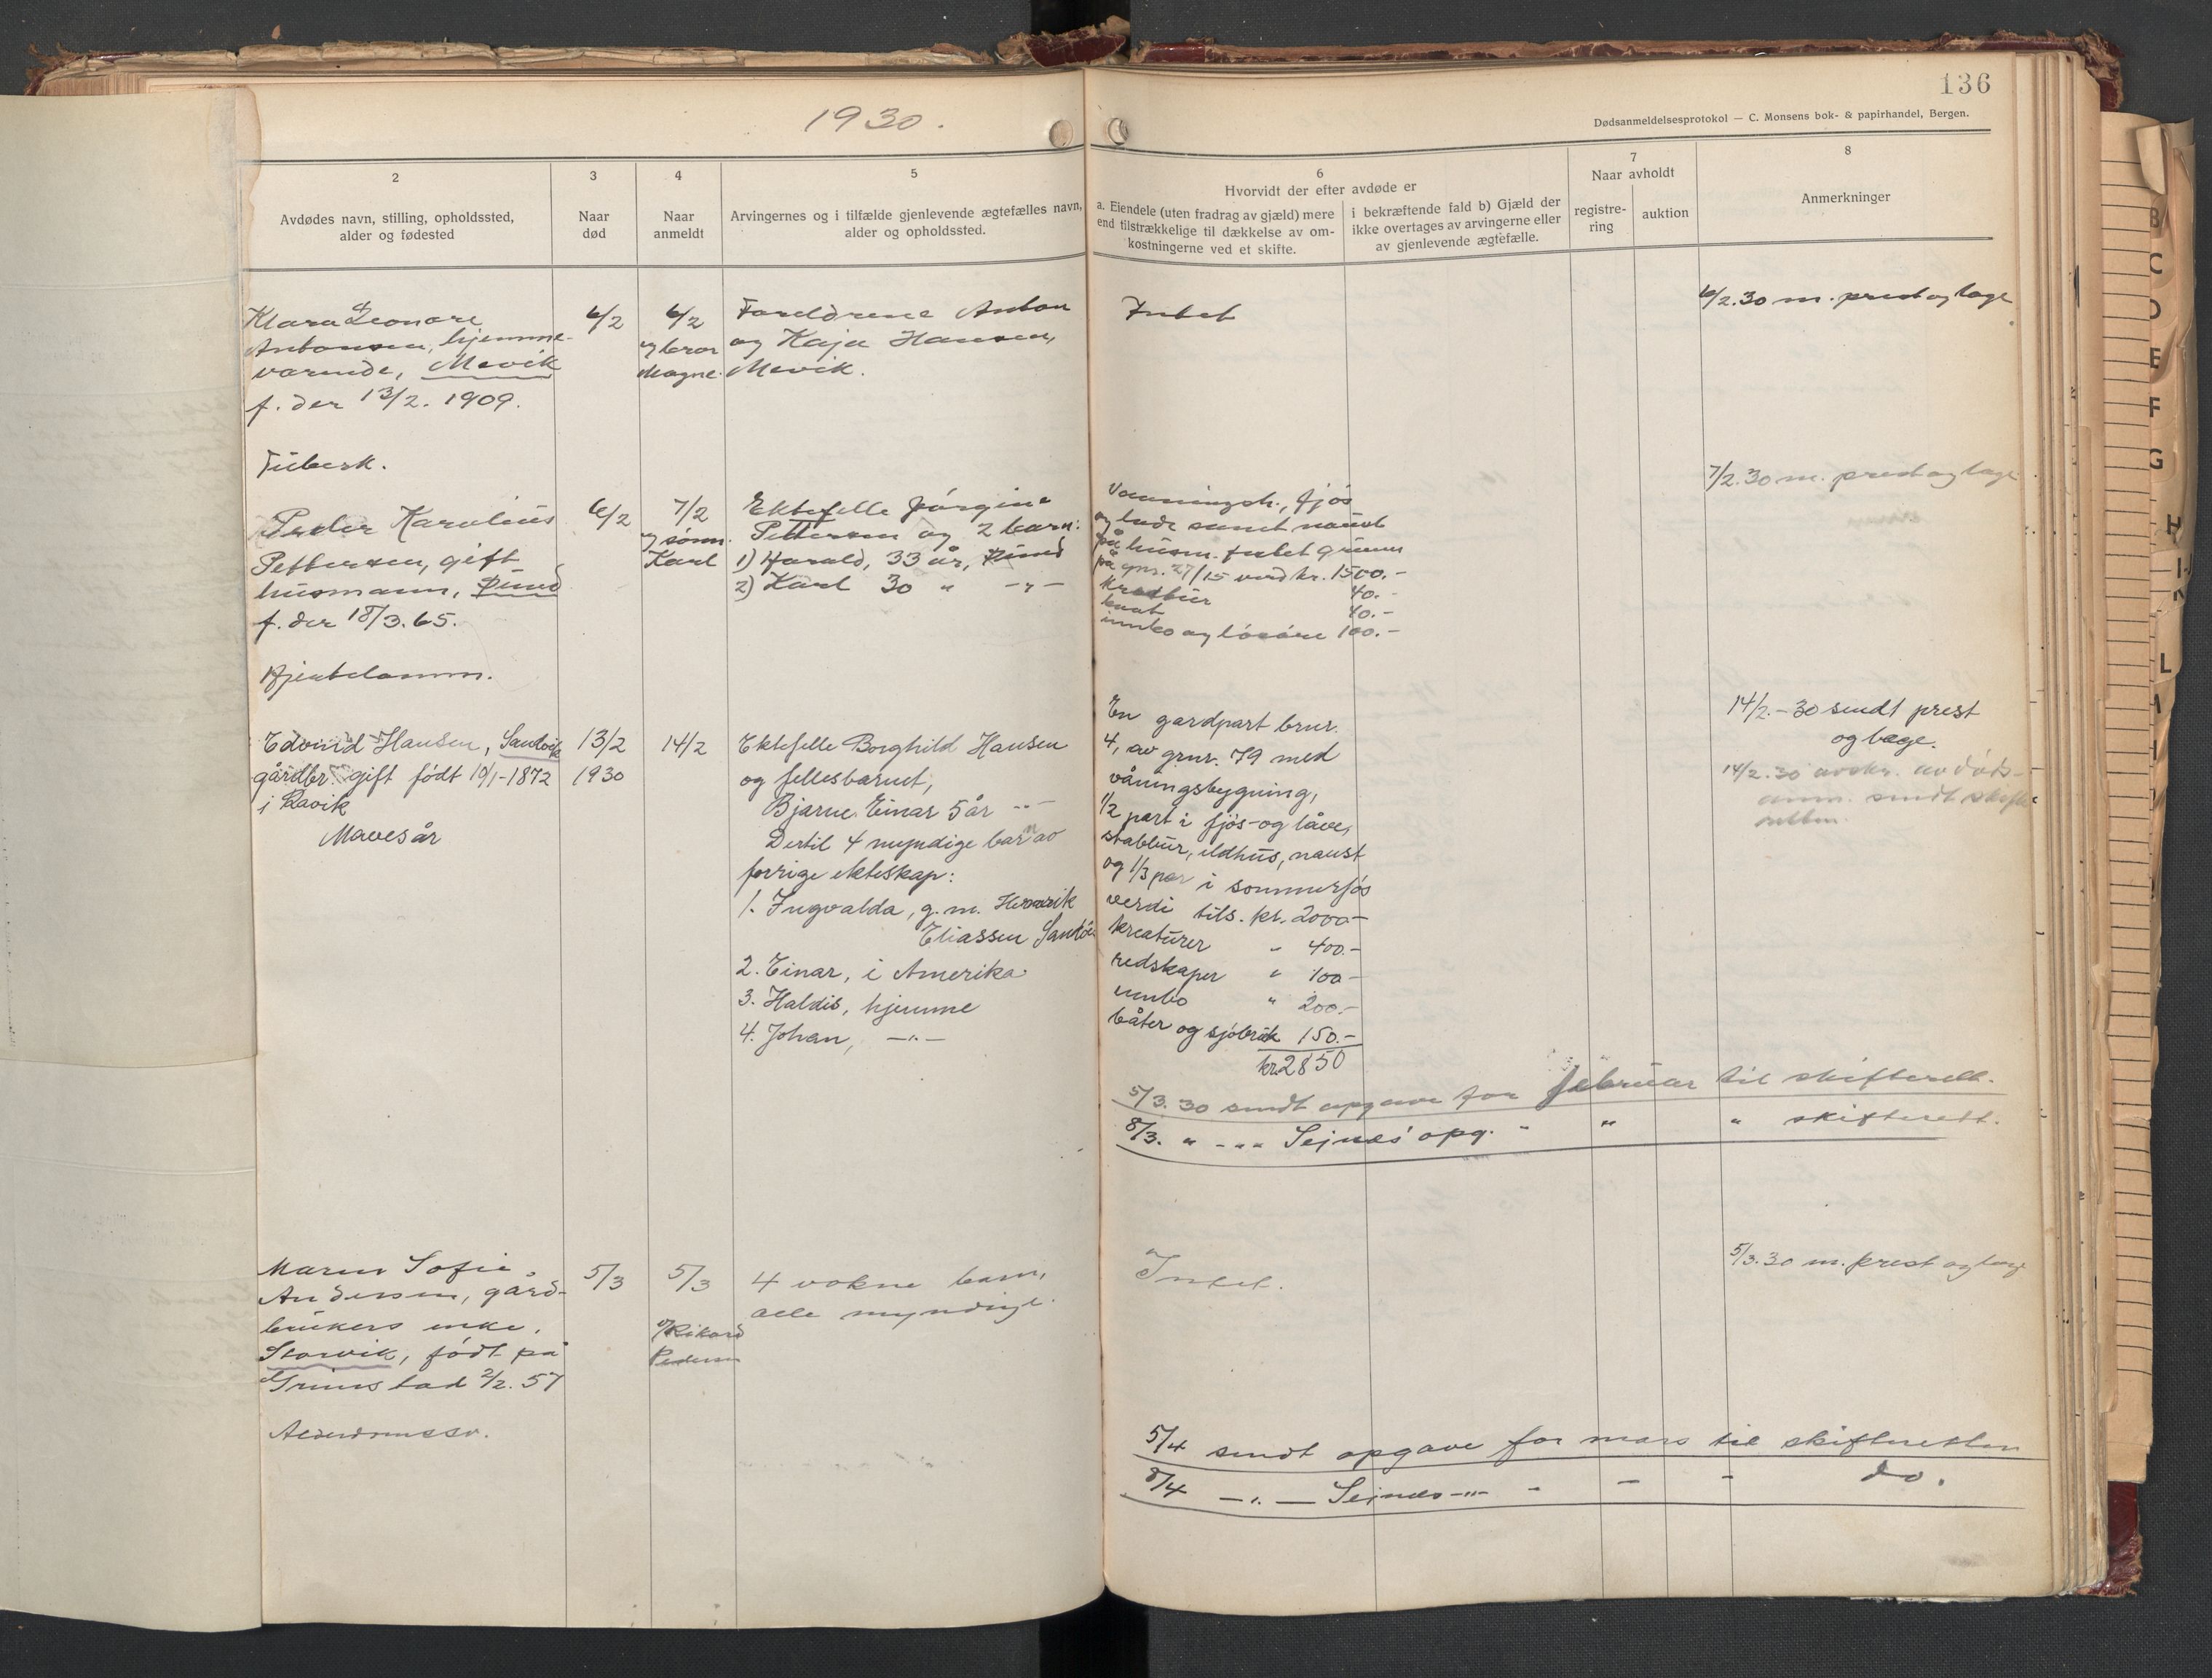 1930.
136
Dødsanmeldelsesprotokol — C. Monsens bok- & papirhandel, Bergen.
2
Avdødes navn, stilling, opholdssted,
alder og fødested
3
Naar
død
4
Naar
anmeldt
5
Arvingernes og i tilfælde gjenlevende ægtefælles navn,
alder og opholdssted.
6
Hvorvidt der efter avdøde er
a. Eiendele (uten fradrag av gjæld) mere
end tilstrækkelige til dækkelse av om-
kostningerne ved et skifte.
i bekræftende fald b) Gjæld der
ikke overtages av arvingerne eller
av gjenlevende ægtefælle.
7
Naar avholdt
registre-
ring
auktion
8
Anmerkninger
Klara Leonore
Antonsen, hjemme-
værende, Mevik
f. der 13/2. 1909.
Tuberk.
6/2
6/2
og bror
Magne
Foreldrene Anton
og Kaja Hansen,
Mevik.
Intet
6/2.30 m. prest og læge
Peder Karolius
Pettersen, gift
husmann,
f. der 18/3.65.
Hjertelamm.
6/2
7/2
og sønn
Karl
Ektefelle Jørgine
Pettersen og 2 barn:
1) Harald, 33 år,
2) Karl 30 " -"-
Vaaningsh., fjøs
og lade samt naust
på husm. festet grunn
på gnr. 27/15 verd kr. 1500.-
40.-
40.-
innbo og løsøre 100.-
7/2.30 m. prest og læge
Edvard Hansen, Sandvik
gårdbr. gift født 10/1-1872
i Ravik
Mavesår
13/2
1930
14/2
Ektefelle Borghild Hansen
og fellesbarnet,
Bjarne Einar 5 år -"-
Dertil 4 myndige barn av
forrige ekteskap:
1. Ingvalda, g.m. Henrik
Eliassen
2. Einar, i Amerika
3. Haldis, hjemme
4. Johan, -"-
En gardpart brnr.
4, av grnr. 79 med
våningsbygning,
1/2 part i fjøs- og låve,
stabbur, ildhus, naust
og 1/3 par i sommerfjøs
verdi tils. kr. 2000-
kreaturer " 400.-
redskaper " 100-
innbo " 200.-
båter og sjøbruk 150.-
kr. 2850
14/2.-30 sendt prest
og læge.
14/2.30 avskr. av døds-
anm. sendt skifte-
retten.
5/3.30 sendt opgave for februar til skifterett.
8/3. " -"- Sejnæs' opg. " " " skifterett.
Maren Sofie
Andersen, gård-
brukers enke,
Storvik, født på
Grimstad 2/2.57
Alderdomssv.
5/3
5/3
v/Rikard
Pedersen
4 voksne barn,
alle myndige.
Intet.
5/3.30 m. prest og læge
5/4 sendt opgave for mars til skifteretten
8/4 -"- Sejnæs -"- - - - do.
B
C
D
E
F
G
H
L